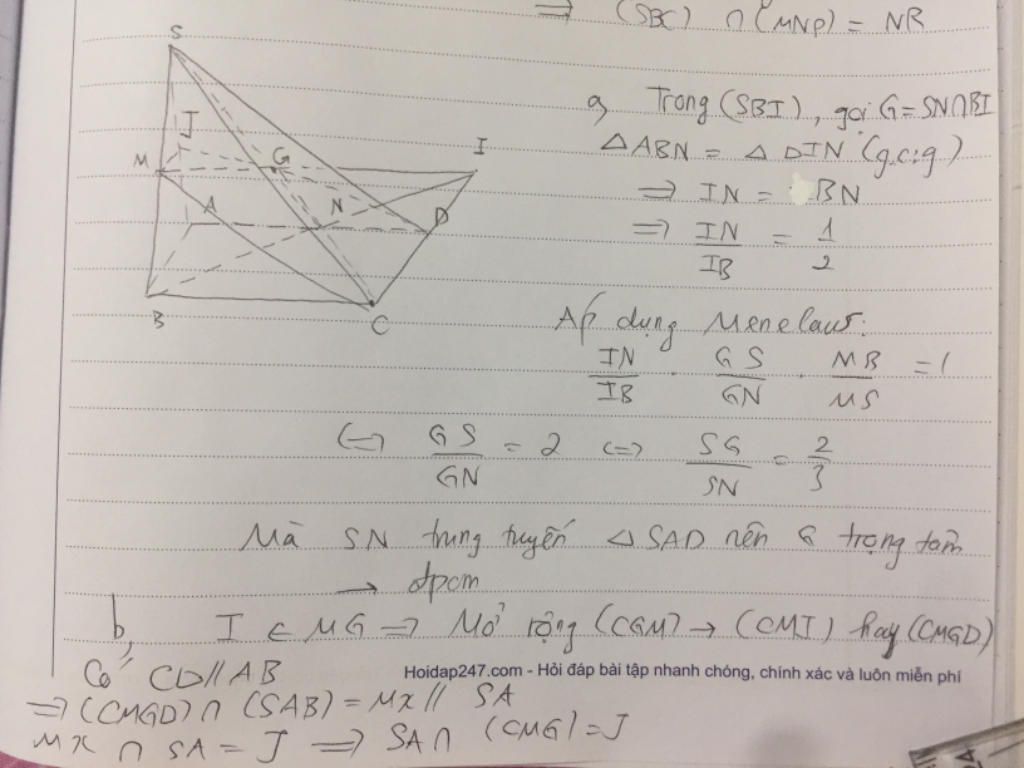 ⇒ (SBC) ∩ (MNP) = NR
S
J
M
G
I
A
N
D
B
C
a, Trong (SBI), gọi G = SN∩BI
△ABN = △DIN (g.c.g)
⇒ IN = BN
⇒ IN/IB = 1/2
Áp dụng Menelaus:
IN/IB . GS/GN . MB/MS = 1
⇔ GS/GN = 2 ⇔ SG/SN = 2/3
Mà SN trung tuyến △SAD nên G trọng tâm
→ đpcm
b, I ∈ MG ⇒ Mở rộng (CGM) → (CMI) hay (CMGD)
Có CD // AB
Hoidap247.com - Hỏi đáp bài tập nhanh chóng, chính xác và luôn miễn phí
⇒ (CMGD) ∩ (SAB) = Mx // SA
Mx ∩ SA = J ⇒ SA ∩ (CMG) = J